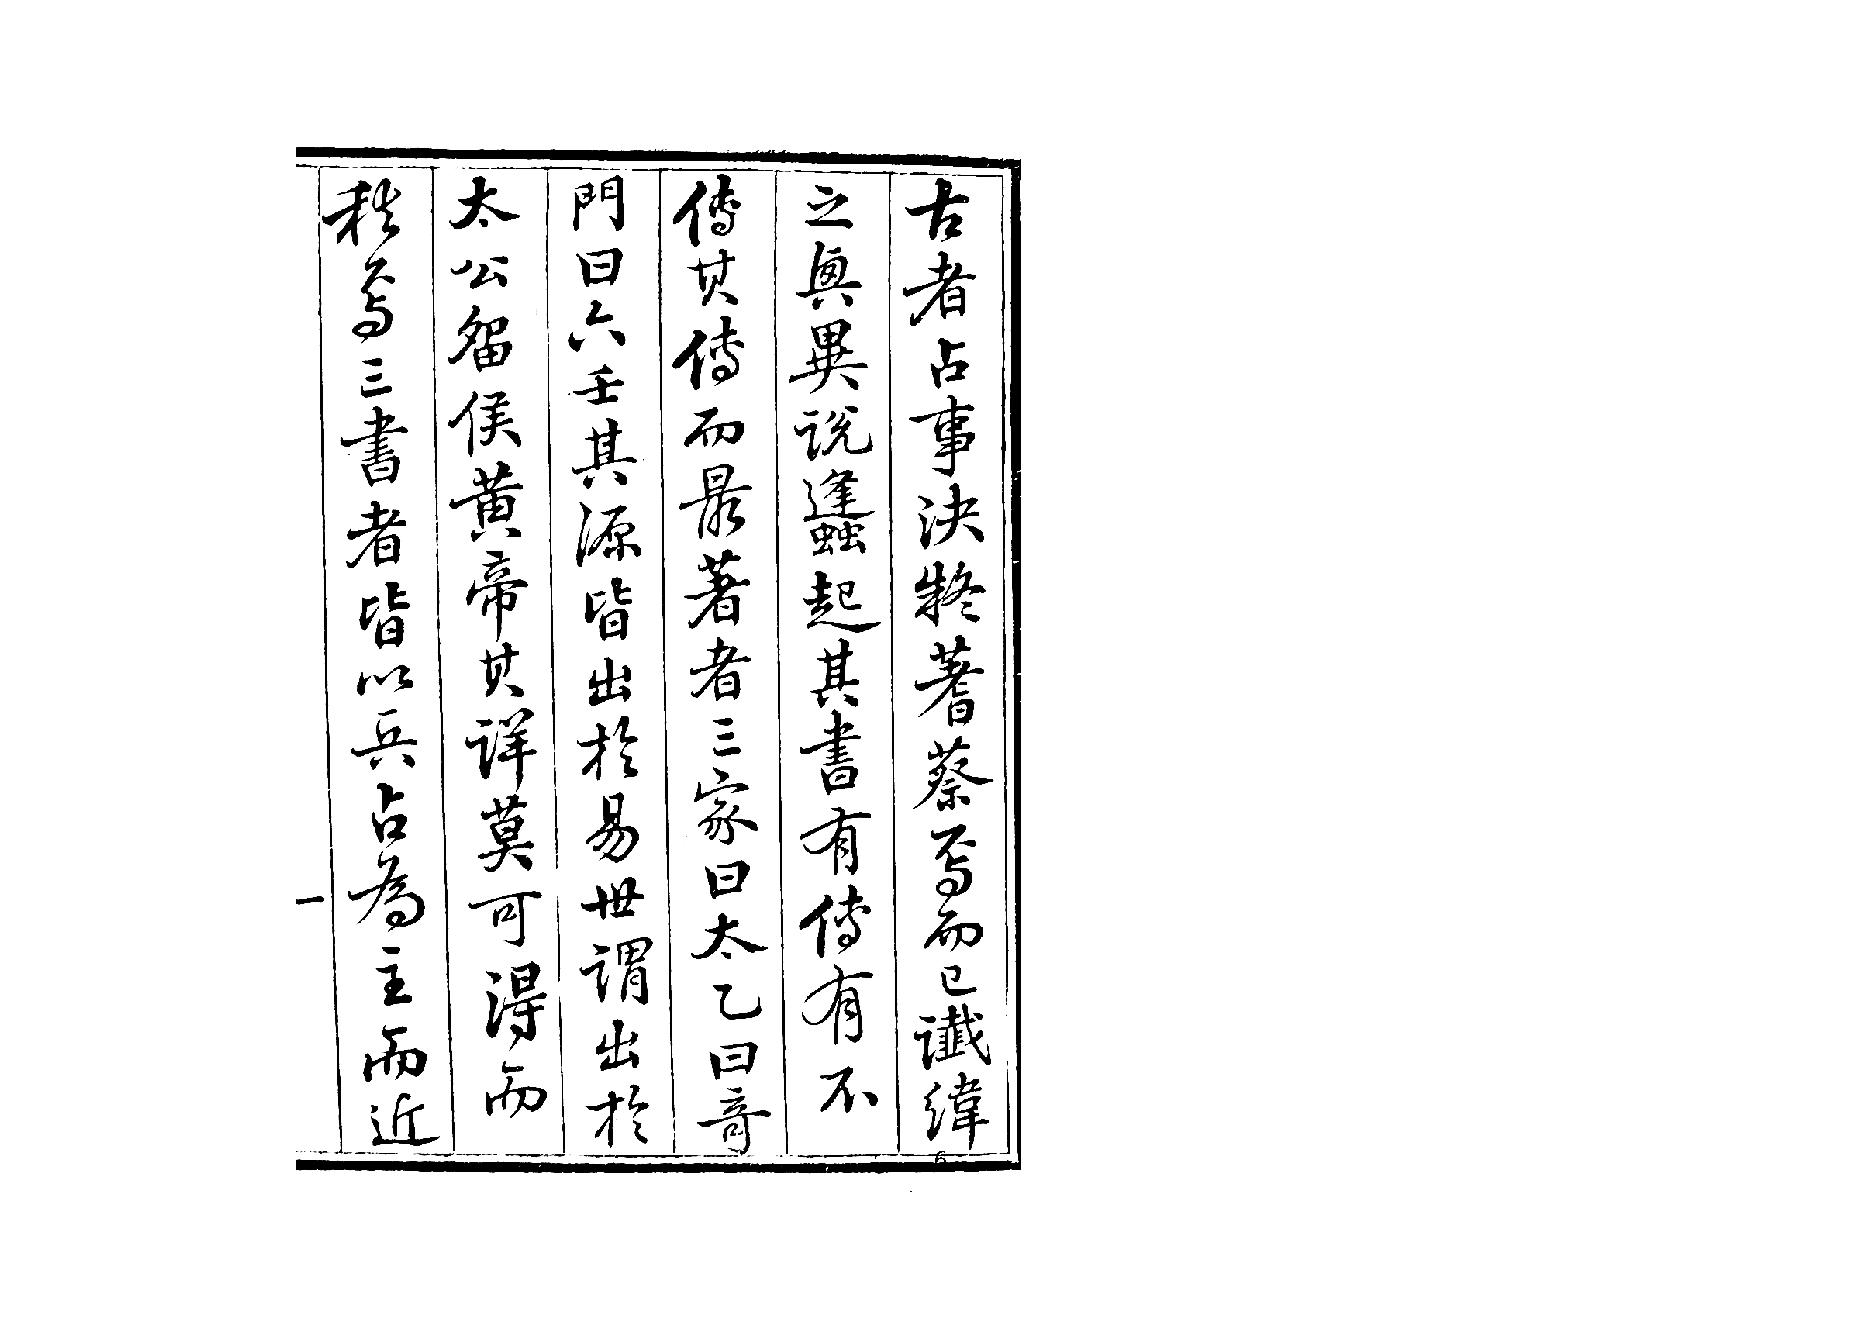 古者占事決疑蓍蔡焉而已讖緯
之興異說蠭起其書有傳有不
傳其傳而最著者三家曰太乙曰奇
門曰六壬其源皆出於易世謂出於
太公留侯黃帝其詳莫可得而
稽焉三書者皆以兵占為主而近
一